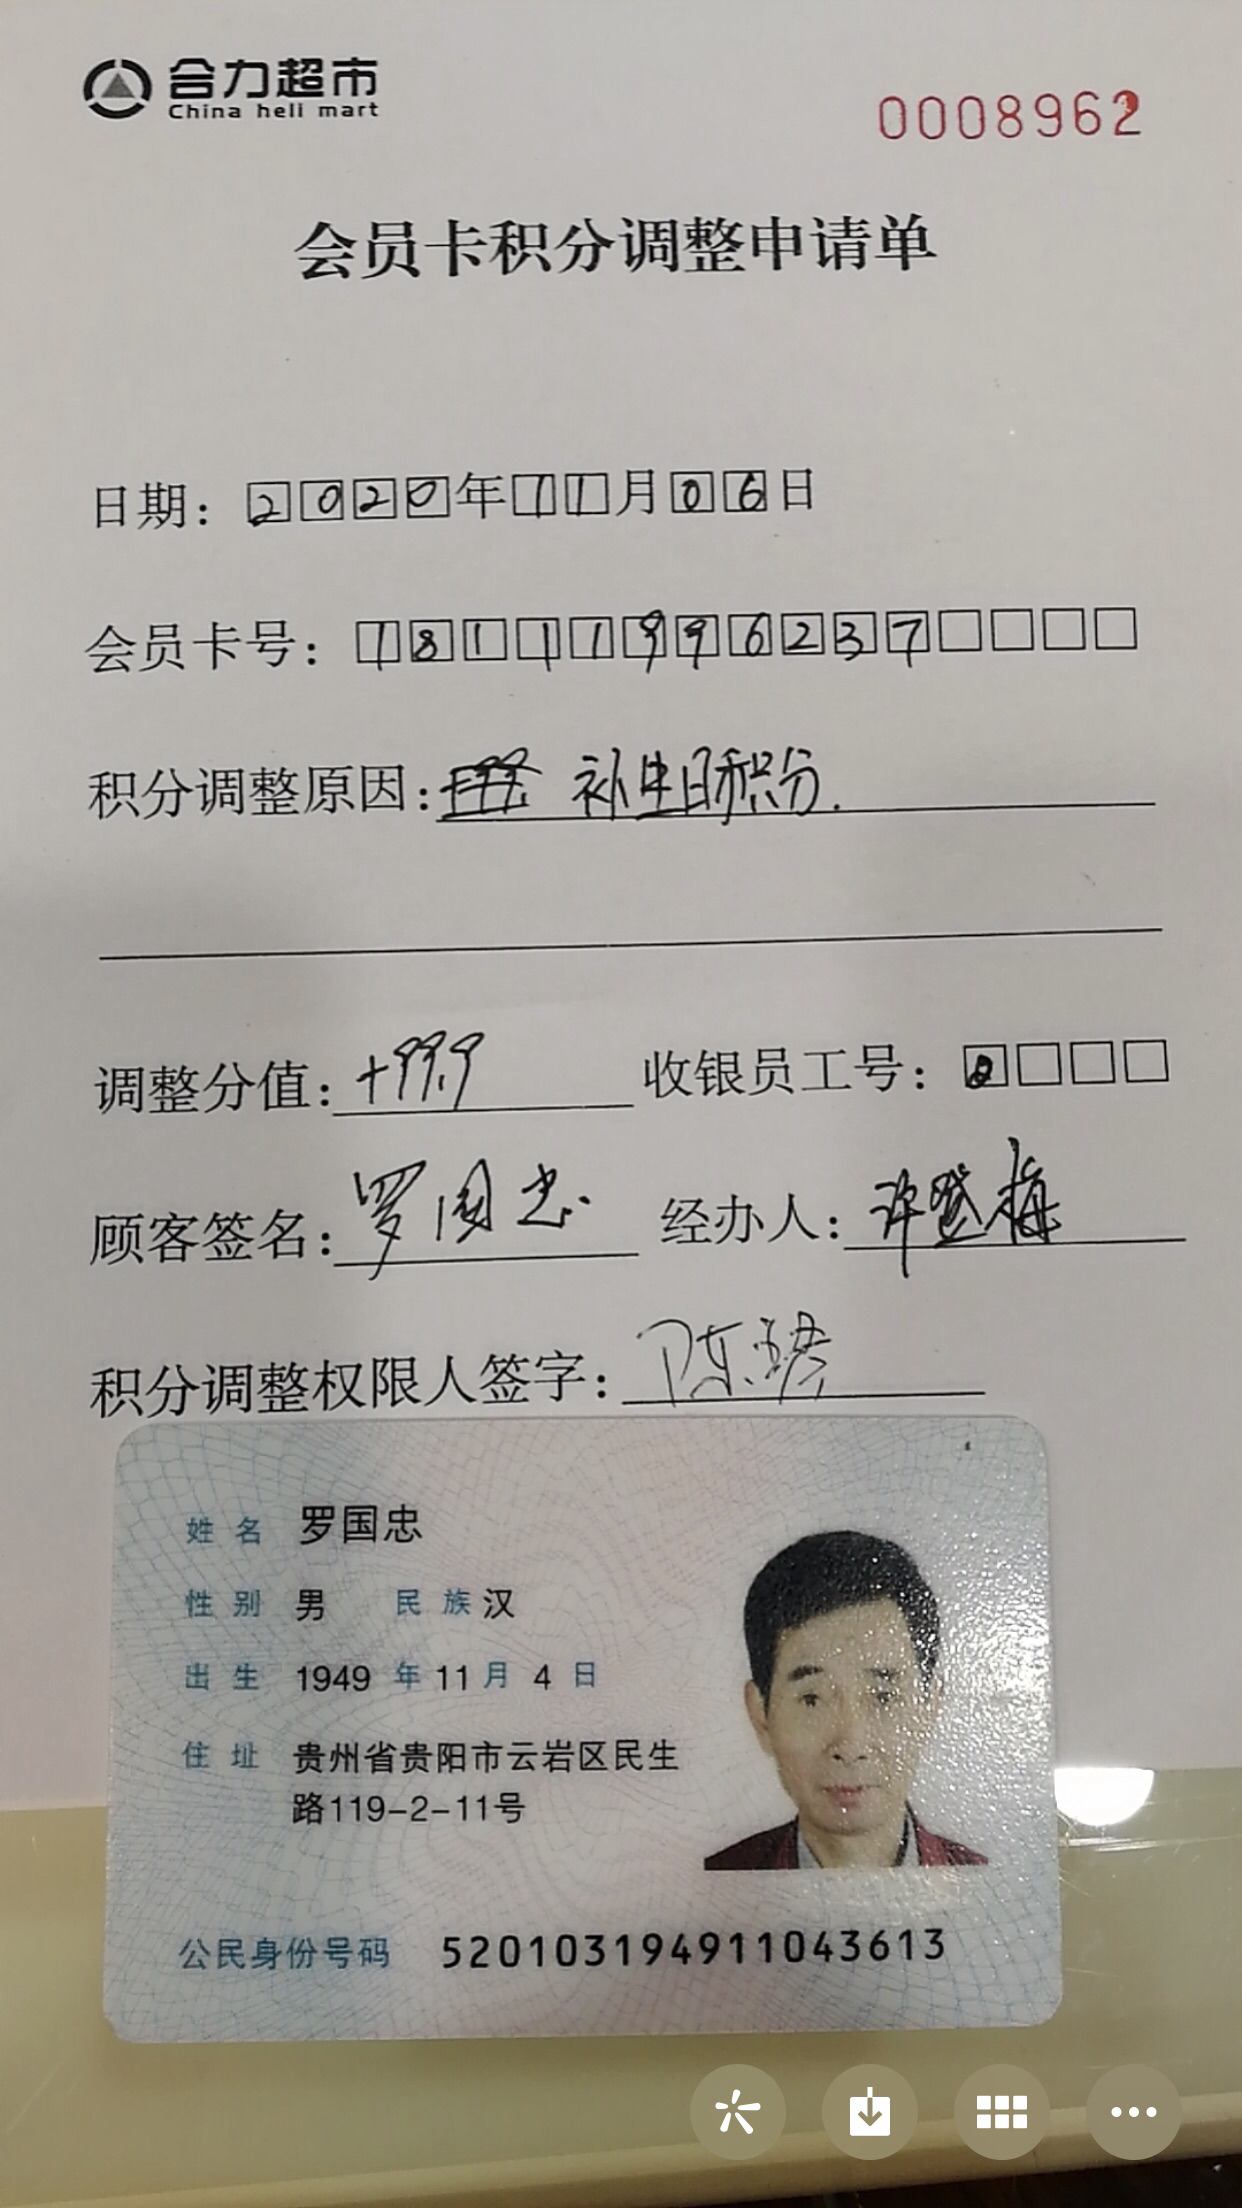 合力超市
China heli mart
0008962
会员卡积分调整申请单
日期：2020年11月06日
会员卡号：18111996237
积分调整原因：补生日积分.
调整分值：+99.9 收银员工号：
顾客签名：罗国忠 经办人：许登梅
积分调整权限人签字：陈
姓名 罗国忠
性别 男 民族 汉
出生 1949年11月4日
住址 贵州省贵阳市云岩区民生
路119-2-11号
公民身份号码 520103194911043613